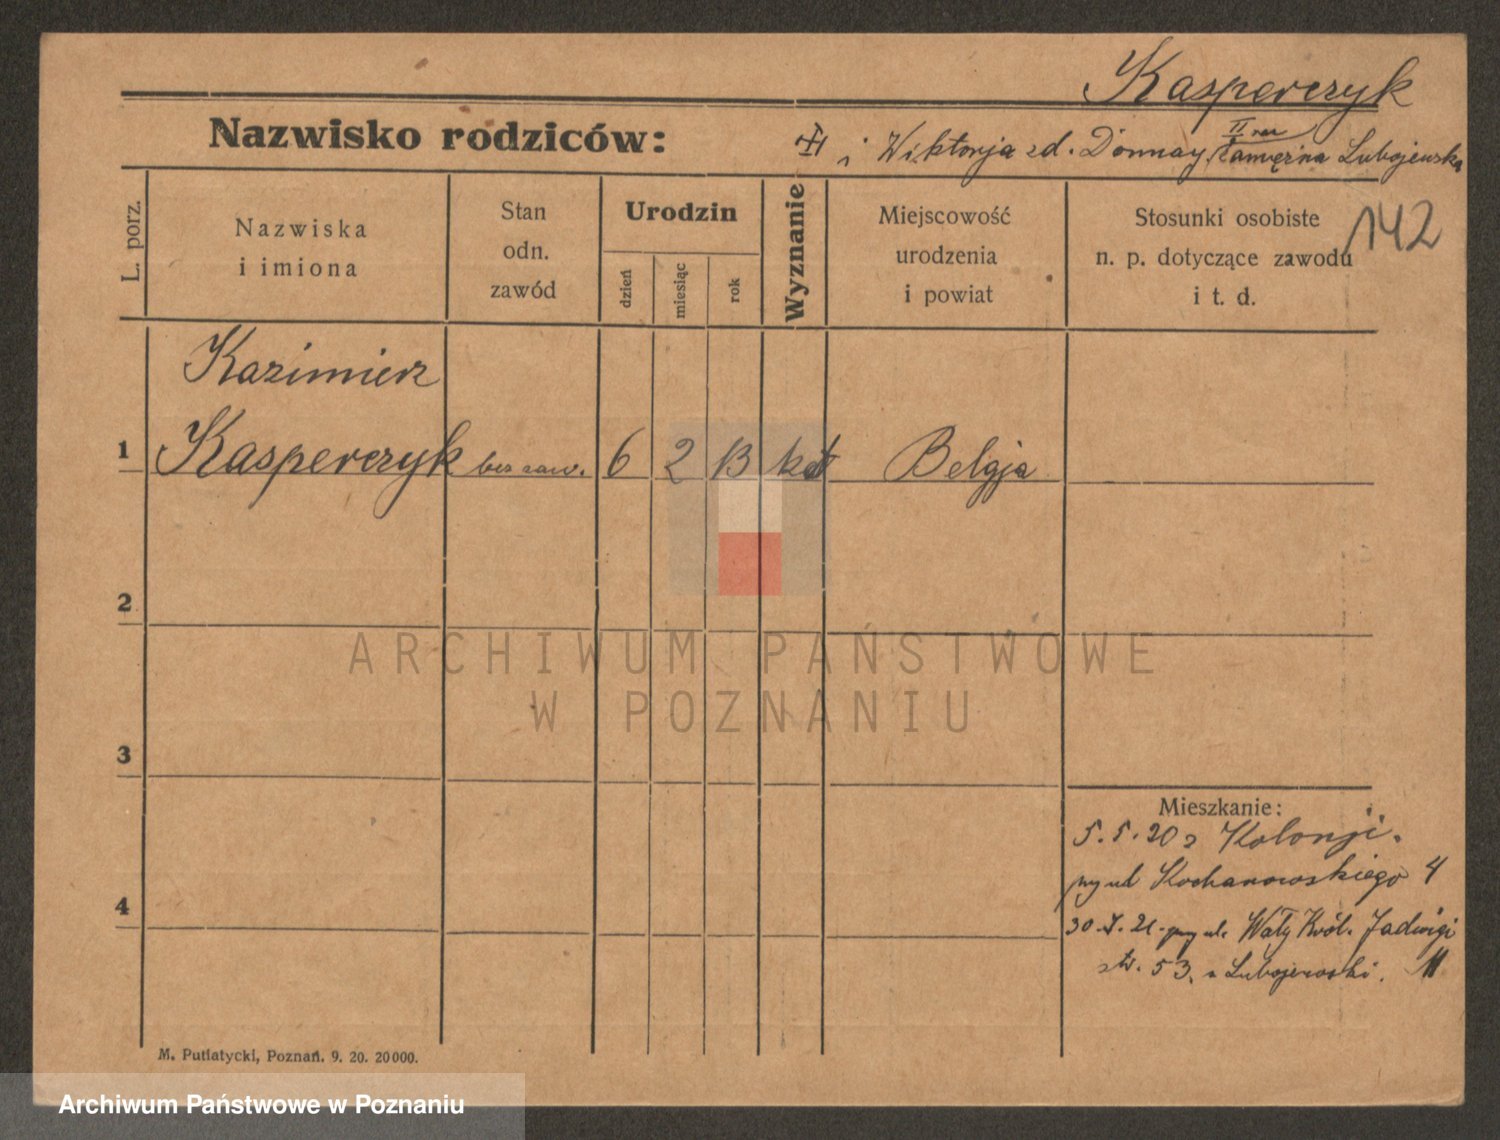 Kasperczyk
Nazwisko rodziców: i Wiktorja zd. Donnay, II raz zamężna Lubojewska
142
L. porz.
Nazwiska i imiona
Stan odn. zawód
Urodzin
dzień
miesiąc
rok
Wyznanie
Miejscowość urodzenia i powiat
Stosunki osobiste n. p. dotyczące zawodu i t. d.
Kazimierz
1 Kasperczyk bez zaw. 6 2 13 kat Belgja
2
3
4
Mieszkanie:
5.5.20 z Kolonji.
przy ul Kochanowskiego 4
30.X.21. przy ul. Wały Król. Jadwigi 11
stw. 53. u Lubojewski.
M. Putiatycki, Poznań. 9. 20. 20000.
ARCHIWUM PAŃSTWOWE
W POZNANIU
Archiwum Państwowe w Poznaniu